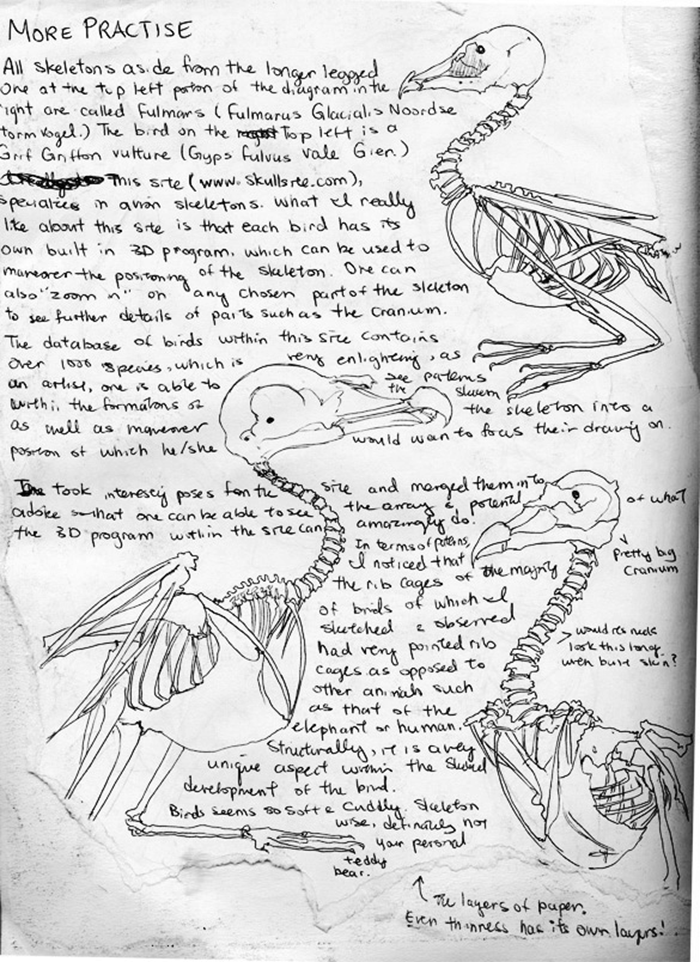 MORE PRACTISE
All skeletons aside from the longer legged
One at the top left potion of the diagram in the
right are called Fulmars (Fulmarus Glacialis Noordse
tormvogel.) The bird on the Top left is a
Grif Griffon vulture (Gyps fulvus Vale Gier.)
This site (www.skullsite.com),
specializes in avian skeletons. What I really
like about this site is that each bird has its
own built in 3D program, which can be used to
maneaver the positioning of the skeleton. One can
also "zoom in" on any chosen part of the skeleton
to see further details of parts such as the cranium.
The database of birds within this site contains
over 1000 species, which is very enlightening, as
an artist, one is able to see patterns
within the formations of the skeleton into a
as well as maneaver would wan to focus their drawing on.
position of which he/she
took interesting poses from the site and merged them into
adobe so that one can be able to see the array & potential of what
the 3D program within the site can amazingly do.
pretty big
Cranium
In terms of patterns,
I noticed that
the rib cages of the majority
of birds of which I
sketched & observed
had very pointed rib
cages as opposed to
other animals such
as that of the
elephant or human.
Structurally, it is a very
unique aspect within the skeletal
development of the bird.
> would its neck
look this long
with built skin?
Birds seems so soft & cuddly. Skeleton
wise, definately not
your personal
teddy
bear.
The layers of paper.
Even thinness has its own layers!